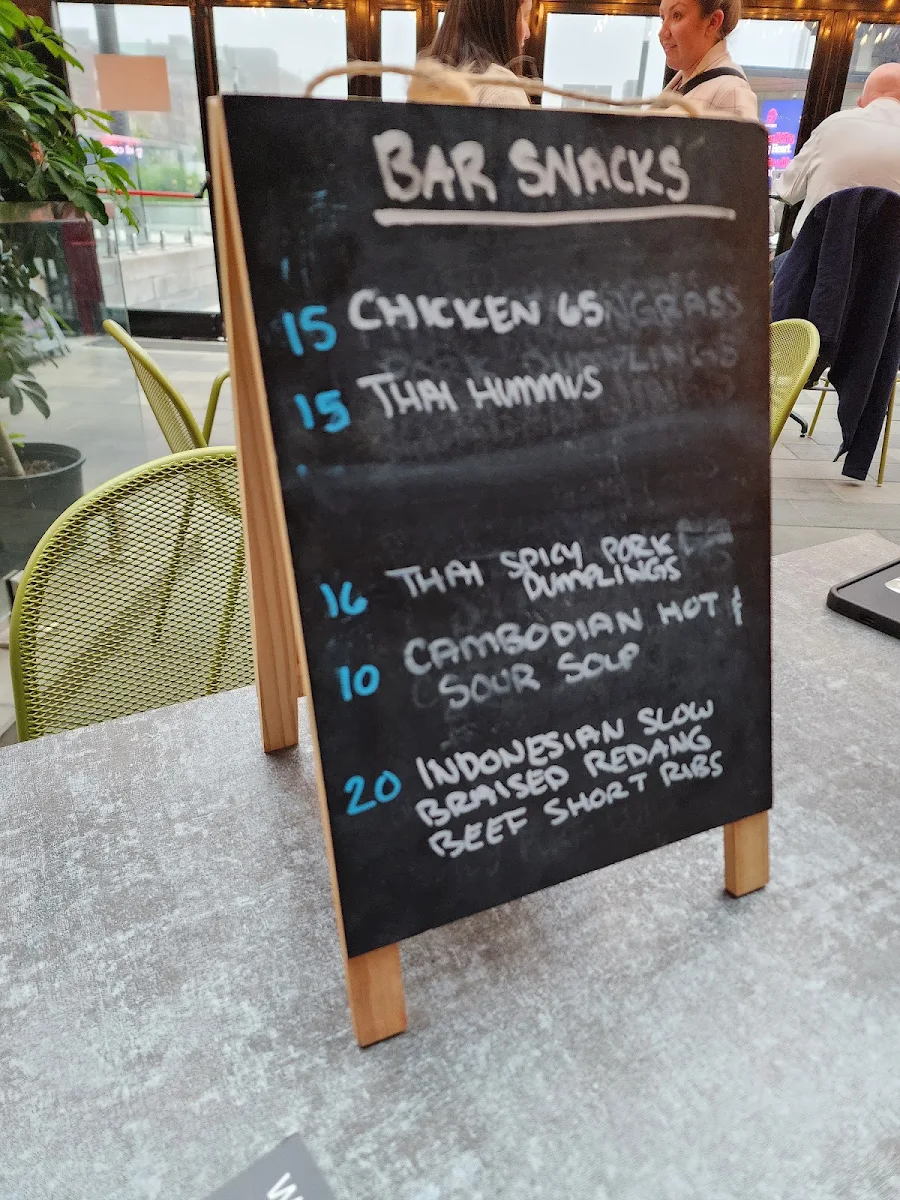 BAR SNACKS
15 CHICKEN 65
15 THAI HUMMUS
16 THAI SPICY PORK
DUMPLINGS
10 CAMBODIAN HOT &
SOUR SOUP
20 INDONESIAN SLOW
BRAISED REDANG
BEEF SHORT RIBS